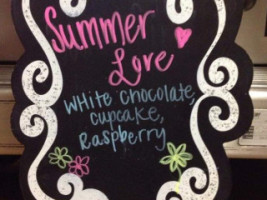 Summer
Love
White chocolate,
cupcake,
Raspberry